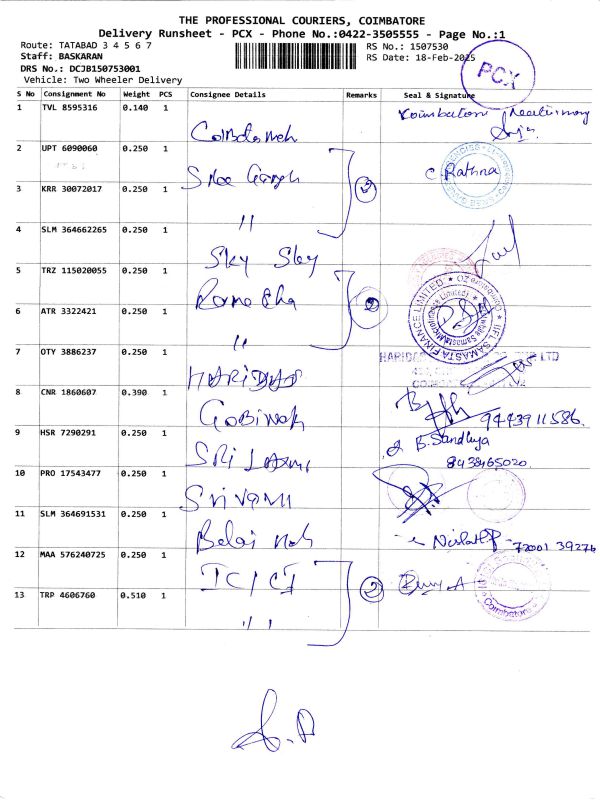 THE PROFESSIONAL COURIERS, COIMBATORE
Delivery Runsheet - PCX - Phone No.:0422-3505555 - Page No.:1
Route: TATABAD 3 4 5 6 7
RS No.: 1507530
Staff: BASKARAN
RS Date: 18-Feb-2025
DRS No.: DCJB150753001
Vehicle: Two Wheeler Delivery
PCX
S No Consignment No Weight PCS Consignee Details Remarks Seal & Signature
1 TVL 8595316 0.140 1
2 UPT 6090060 0.250 1 C. Rathna
3 KRR 30072017 0.250 1 " 2
4 SLM 364662265 0.250 1 Sky Sky
5 TRZ 115020055 0.250 1
IIFL SAMASTA FINANCE LIMITED
6 ATR 3322421 0.250 1 " 2
7 OTY 3886237 0.250 1 HARIDAS
8 CNR 1860607 0.390 1 9443911586.
9 HSR 7290291 0.250 1 SRI LAXMI B. Sandhya
8438465020.
10 PRO 17543477 0.250 1 Sri Vami
11 SLM 364691531 0.250 1 72001 39276
12 MAA 576240725 0.250 1 ICICI 2
13 TRP 4606760 0.510 1 "
Coimbatore